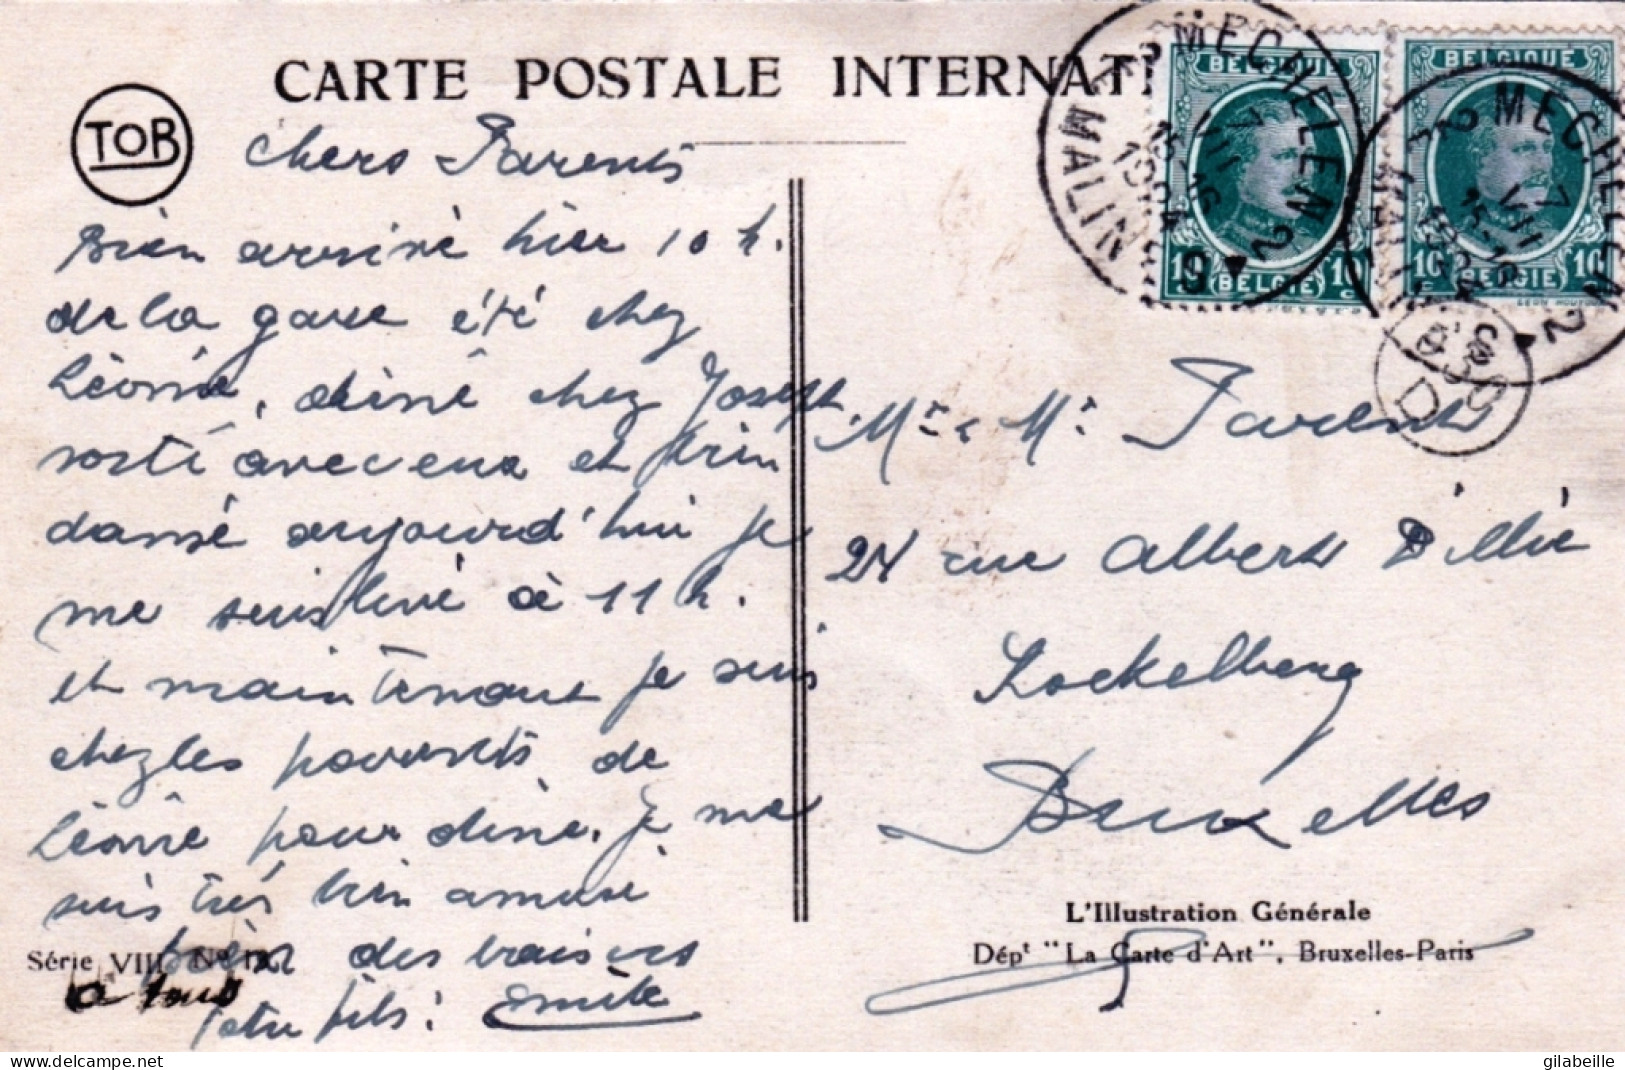 CARTE POSTALE INTERNATI
TOB
Chers Parents
Bien arrivé hier 10 h.
de la gare été chez
Léonie, diné chez Joseph
sorti avec eux et bien
dansé aujourd'hui je
me suis levé à 11 h.
et maintenant je suis
chez les parents de
Léonie pour diner. je me
suis très bien amusé
bien des baisers
a tous
votre fils: Emile
Série VIII N°
BELGIQUE
10 BELGIE 10
BELGIQUE
10 BELGIE 10
MECHELEN 2
7 VII 15-16 1924
MALINES 2
MECHELEN 2
7 VII 15-16 1924
MALINES 2
D
Mr & Me Parents
24 rue Albert
Koekelberg
Bruxelles
L'Illustration Générale
Dépt "La Carte d'Art", Bruxelles-Paris
delcampe.net
gilabeille